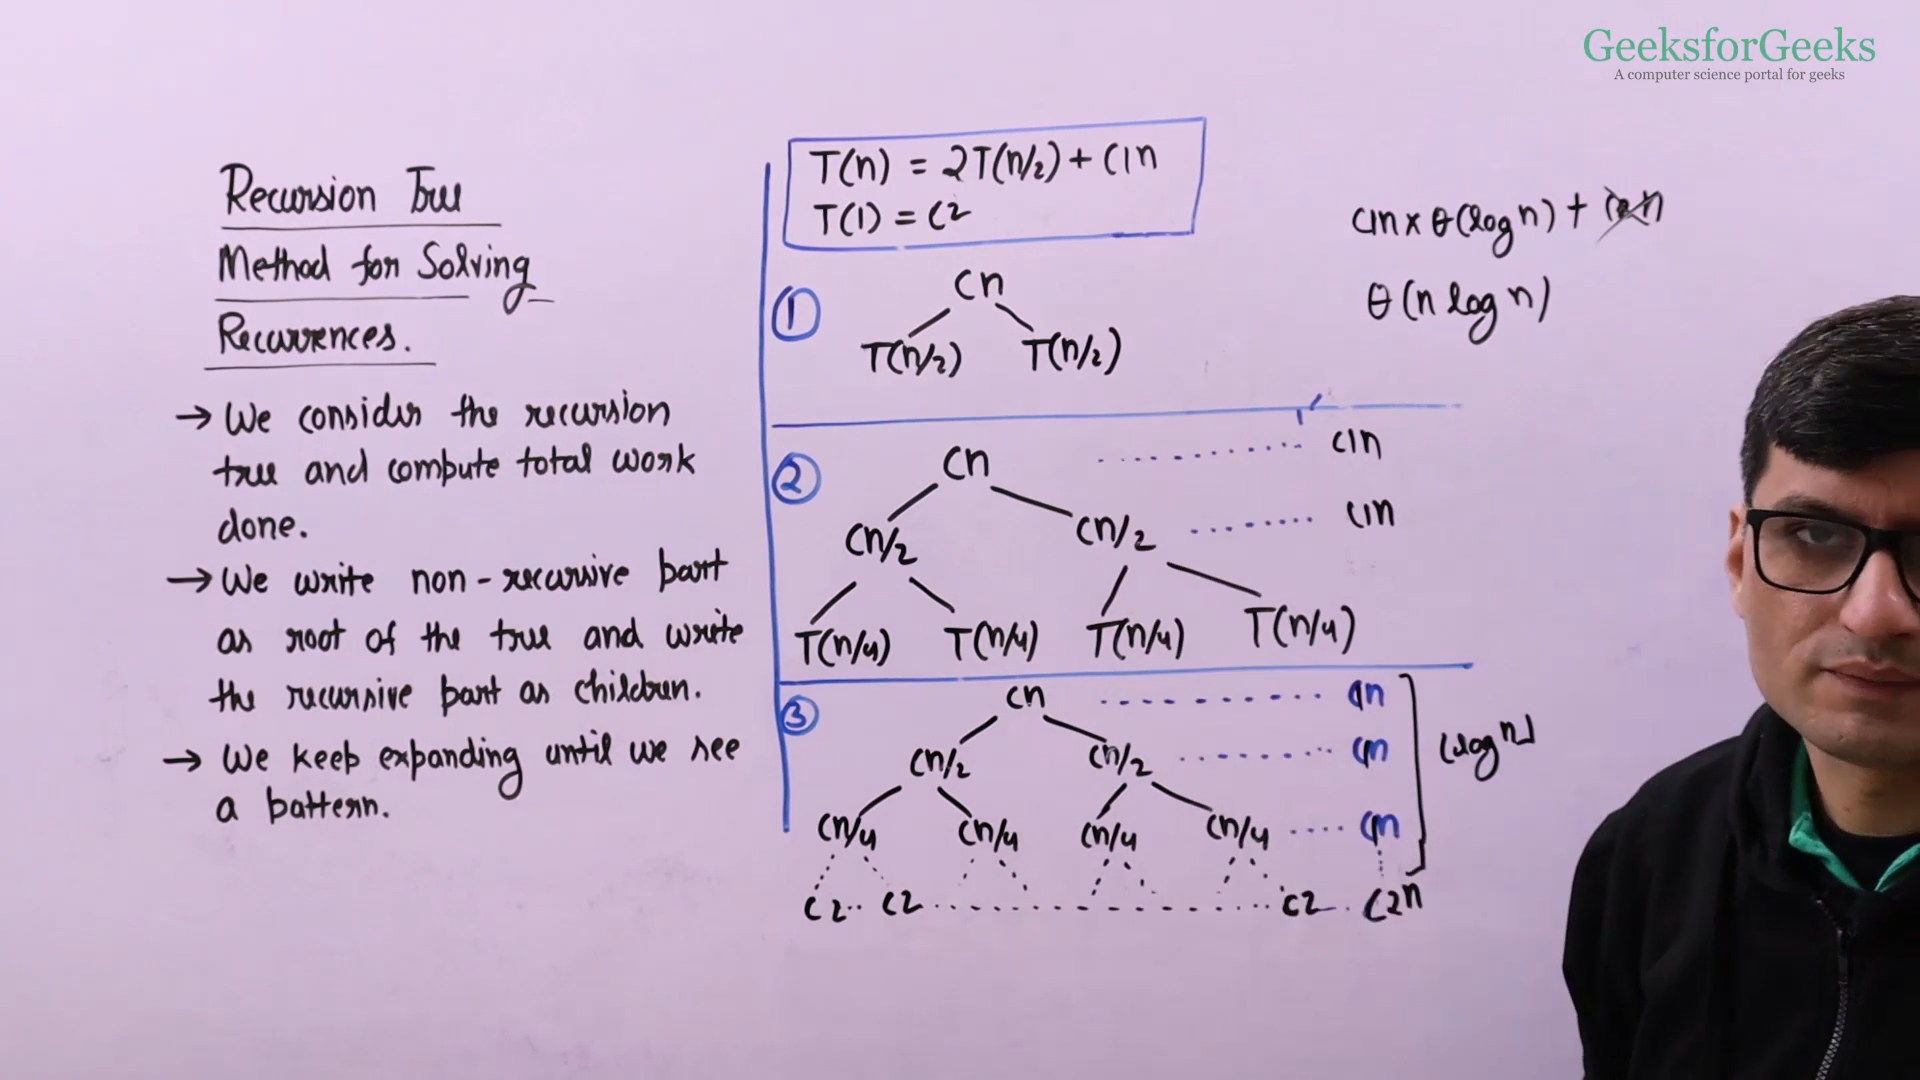 GeeksforGeeks
A computer science portal for geeks
Recursion Tree
Method for Solving
Recurrences.
→ We consider the recursion
tree and compute total work
done.
→ We write non-recursive part
as root of the tree and write
the recursive part as children.
→ We keep expanding until we see
a pattern.
T(n) = 2T(n/2) + C1n
T(1) = C2
①
Cn
T(n/2) T(n/2)
②
Cn ........... C1n
Cn/2 Cn/2 ........ C1n
T(n/4) T(n/4) T(n/4) T(n/4)
③
Cn ........... C1n
Cn/2 Cn/2 ......... C1n
Cn/4 Cn/4 Cn/4 Cn/4 .... C1n
C2.. C2 .................... C2 .. C2n
⌊log n⌋
C1n x θ(log n) + C2n
θ(n log n)